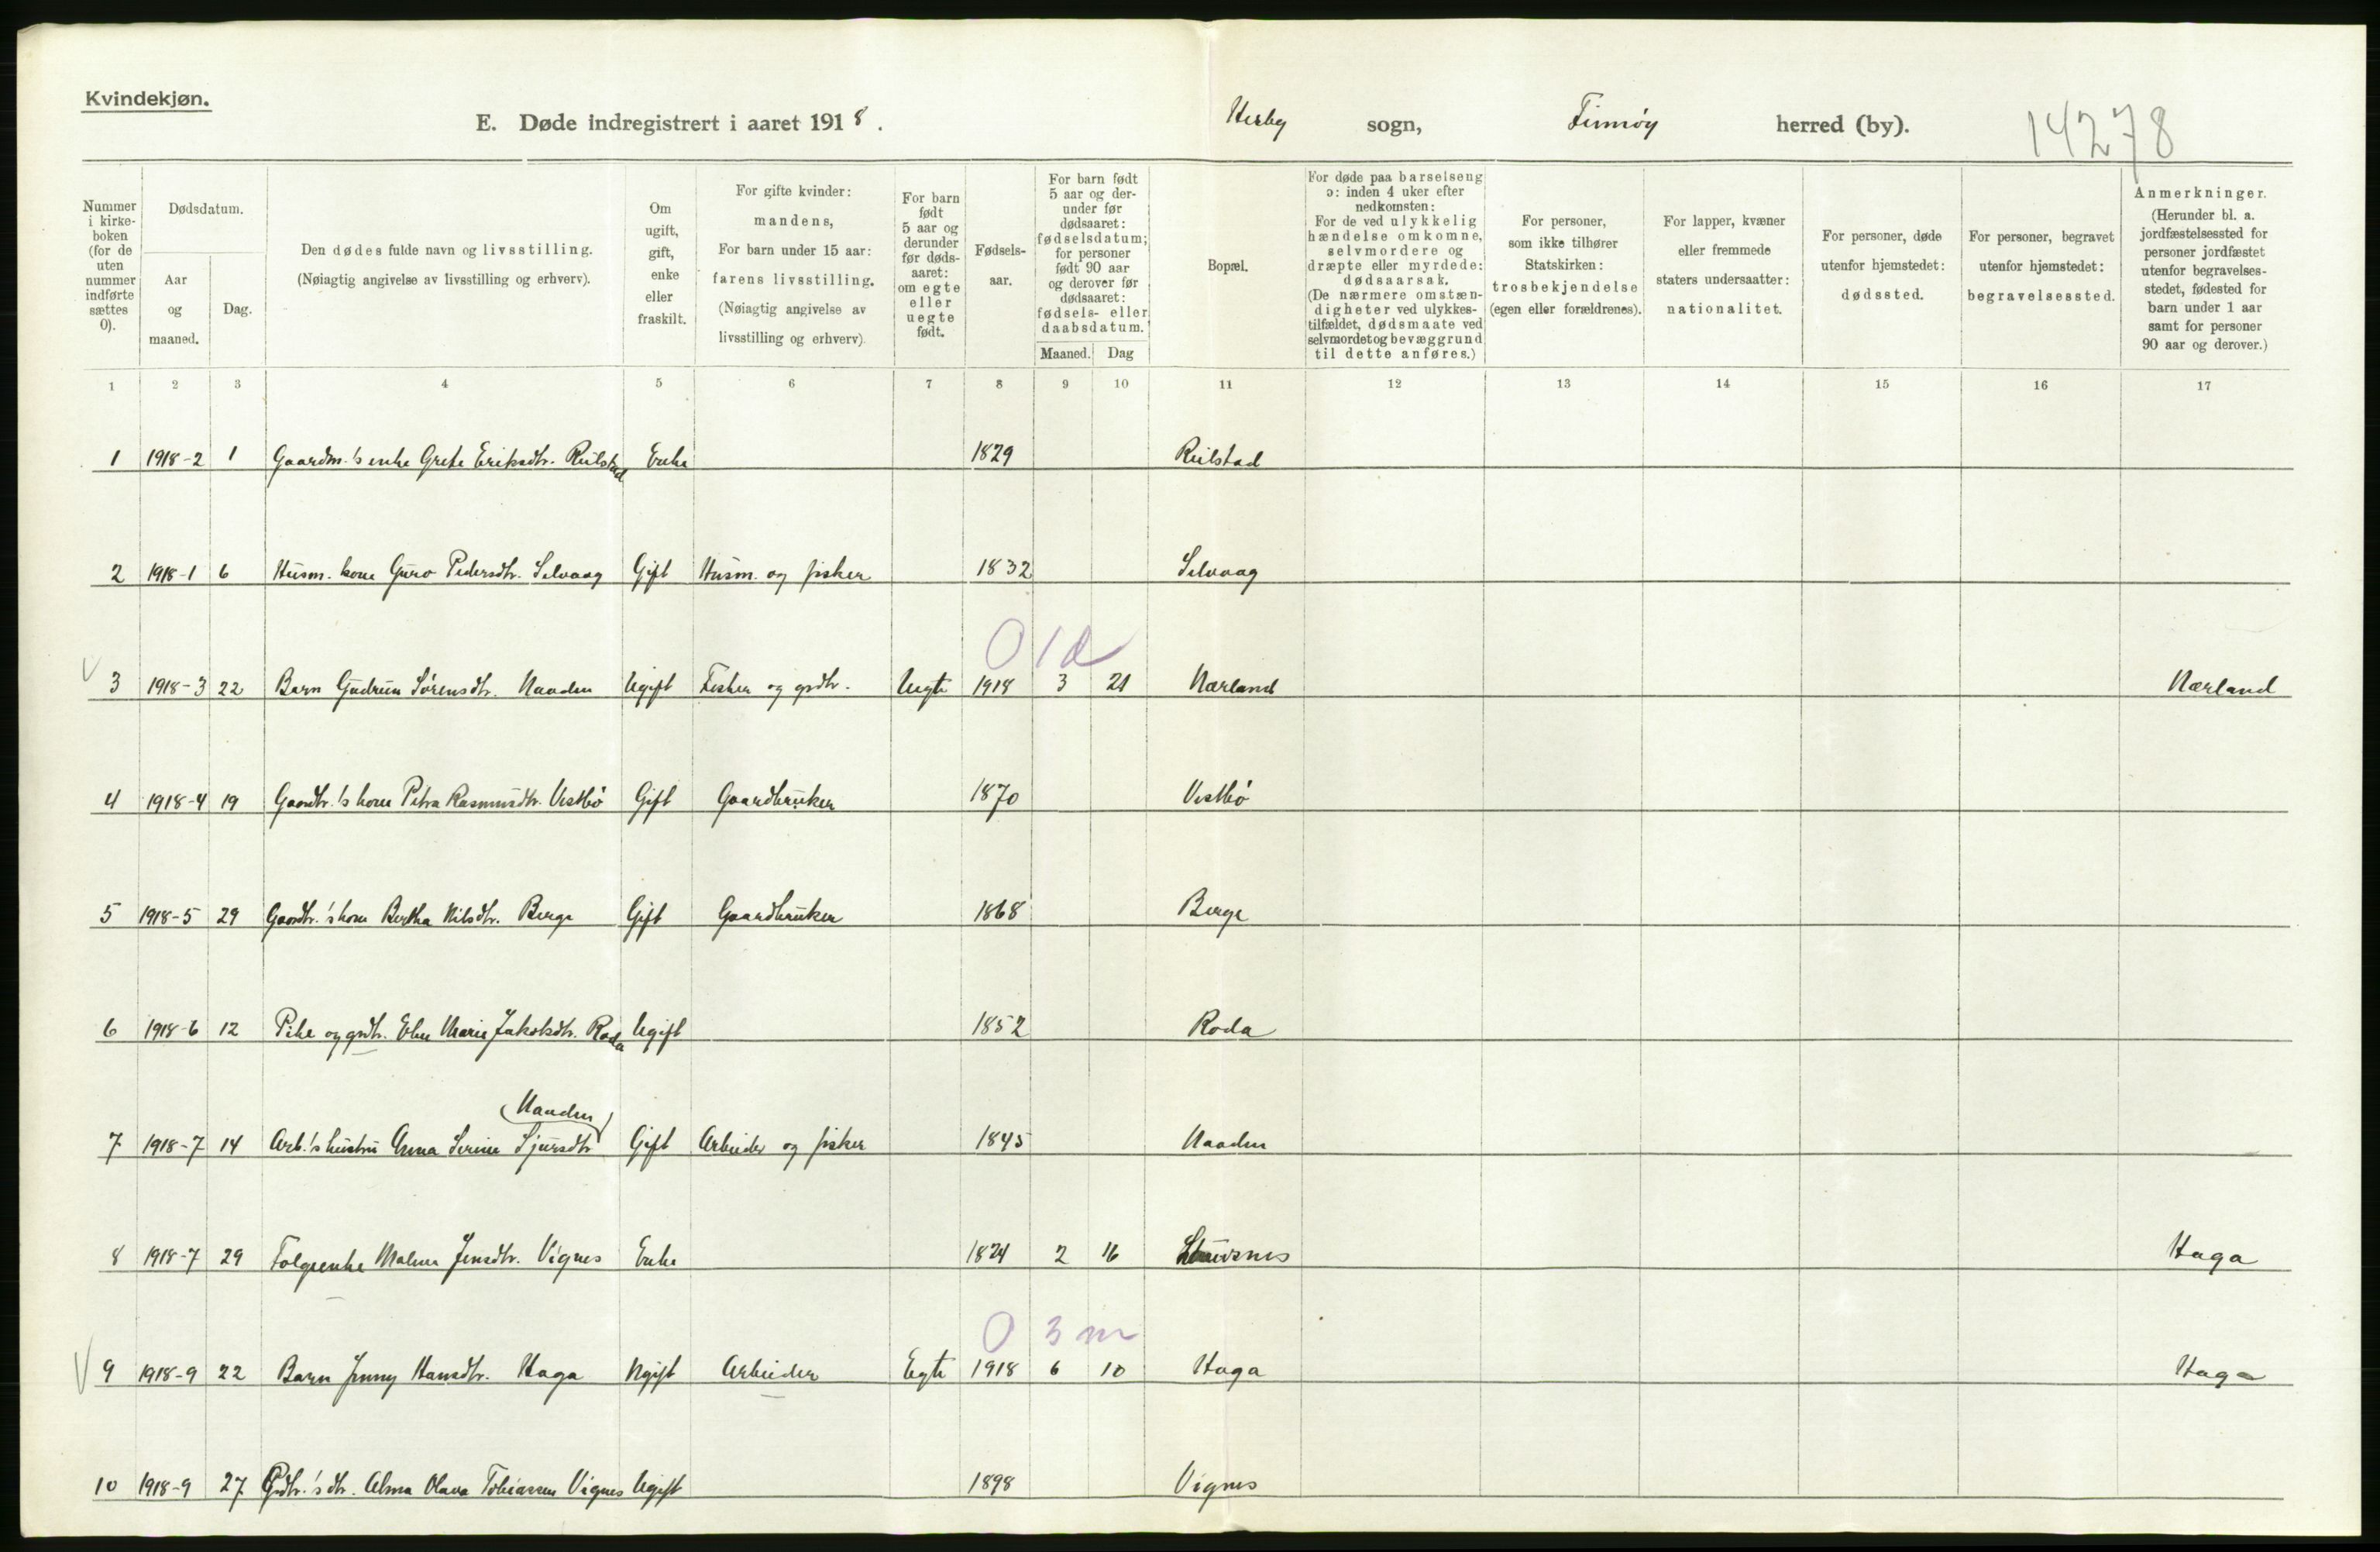 Kvindekjøn.
E. Døde indregistrert i aaret 1918. Hesby sogn, Finnøy herred (by). 14278
Nummer i kirke-boken (for de uten nummer indførte sættes 0).
Dødsdatum.
Aar og maaned.
Dag.
Den dødes fulde navn og livsstilling.
(Nøiagtig angivelse av livsstilling og erhverv).
Om ugift, gift, enke eller fraskilt.
For gifte kvinder: mandens,
For barn under 15 aar: farens livsstilling.
(Nøiagtig angivelse av livsstilling og erhverv).
For barn født 5 aar og derunder før døds-aaret: om egte eller uegte født.
Fødsels-aar.
For barn født 5 aar og der-under før dødsaaret: fødselsdatum; for personer født 90 aar og derover før dødsaaret: fødsels- eller daabsdatum.
Maaned. Dag
Bopæl.
For døde paa barselseng ɔ: inden 4 uker efter nedkomsten:
For de ved ulykkelig hændelse omkomne, selvmordere og dræpte eller myrdede: dødsaarsak.
(De nærmere omstæn-digheter ved ulykkes-tilfældet, dødsmaate ved selvmordet og bevæggrund til dette anføres.)
For personer, som ikke tilhører Statskirken: trosbekjendelse (egen eller forældrenes).
For lapper, kvæner eller fremmede staters undersaatter: nationalitet.
For personer, døde utenfor hjemstedet: dødssted.
For personer, begravet utenfor hjemstedet: begravelsessted.
Anmerkninger.
(Herunder bl. a. jordfæstelsessted for personer jordfæstet utenfor begravelses-stedet, fødested for barn under 1 aar samt for personer 90 aar og derover.)
1 2 3 4 5 6 7 8 9 10 11 12 13 14 15 16 17
1 1918-2 1 Gaardm.'s enke Grete Eriksdtr. Reilstad Enke 1829 Reilstad
2 1918-1 6 Husm. kone Guro Pedersdtr. Selvaag Gift Husm. og fisker 1832 Selvaag
0 1 d
3 1918-3 22 Barn Gudrun Sørensdtr. Naaden Ugift Fisker og grdbr. Uegte 1918 3 21 Nærland Nærland
4 1918-4 19 Gaardbr.'s kone Petra Rasmusdtr. Vestbø Gift Gaardbruker 1870 Vestbø
5 1918-5 29 Gaardbr.'s kone Bertha Nilsdtr. Berge Gift Gaardbruker 1868 Berge
6 1918-6 12 Pike og grdbr. Elen Marie Jakobsdtr. Roda Ugift 1852 Roda
(Naaden)
7 1918-7 14 Arb.'s hustru Anna Serine Sjursdtr Gift Arbeider og fisker 1845 Naaden
8 1918-7 29 Folgeenke Malene Jensdtr. Vignes Enke 1824 2 16 Haga
0 3 m
9 1918-9 22 Barn Jenny Hansdtr. Haga Ugift Arbeider Egte 1918 6 10 Haga Haga
10 1918-9 27 Grdbr.'s dtr. Alma Olava Tobiassen Vignes Ugift 1898 Vignes